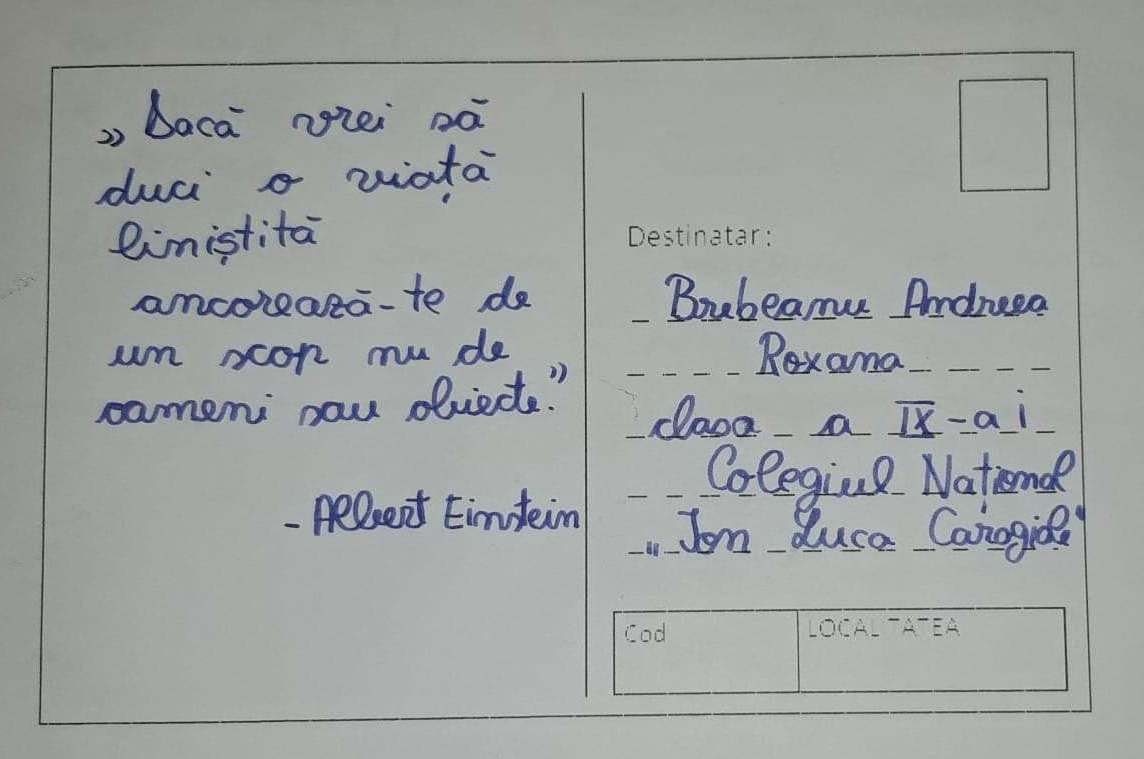 „Dacă vrei să
duci o viață
liniștită
ancorează-te de
un scop nu de
oameni sau obiecte.”
- Albert Einstein
Destinatar:
Brebeanu Andreea
Roxana
clasa a IX-a i
Colegiul Național
„Ion Luca Caragiale”
Cod
LOCALITATEA